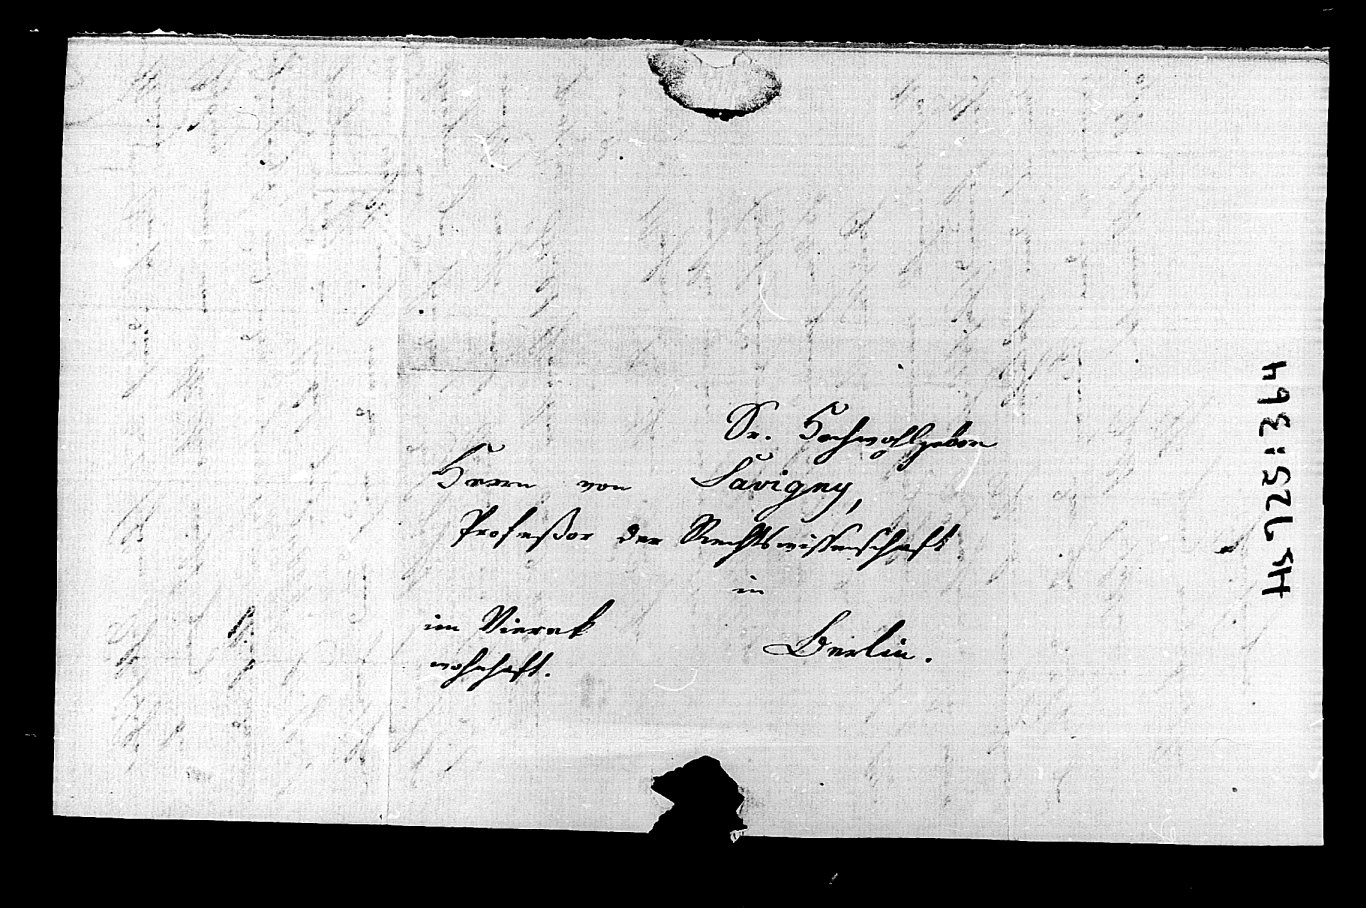 Sr. Hochwohlgeboren
Herrn von Savigny,
Profeßor der Rechtswissenschaft
in
im Viereck
Berlin.
wohnhaft.
Hs 725:364